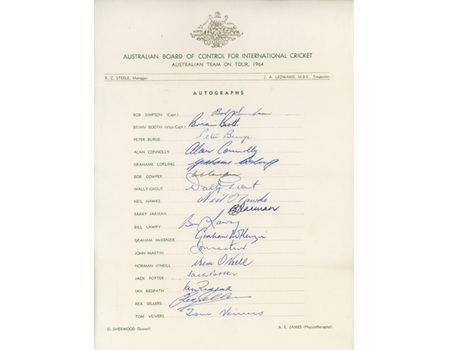 AUSTRALIAN BOARD OF CONTROL FOR INTERNATIONAL CRICKET
AUSTRALIAN TEAM ON TOUR, 1964
R. C. STEELE, Manager J. A. LEDWARD, M.B.E., Treasurer
AUTOGRAPHS
BOB SIMPSON (Capt.) Bob Simpson
BRIAN BOOTH (Vice-Capt.) Brian Booth
PETER BURGE Peter Burge
ALAN CONNOLLY Alan Connolly
GRAHAME CORLING Grahame Corling
BOB COWPER Bob Cowper
WALLY GROUT Wally Grout
NEIL HAWKE Neil Hawke
BARRY JARMAN BJarman
BILL LAWRY Bill Lawry
GRAHAM McKENZIE Graham McKenzie
JOHN MARTIN
NORMAN O'NEILL Norm O'Neill
JACK POTTER Jack Potter
IAN REDPATH Ian Redpath
REX SELLERS Rex Sellers
TOM VEIVERS Tom Veivers
D. SHERWOOD (Scorer) A. E. JAMES (Physiotherapist)